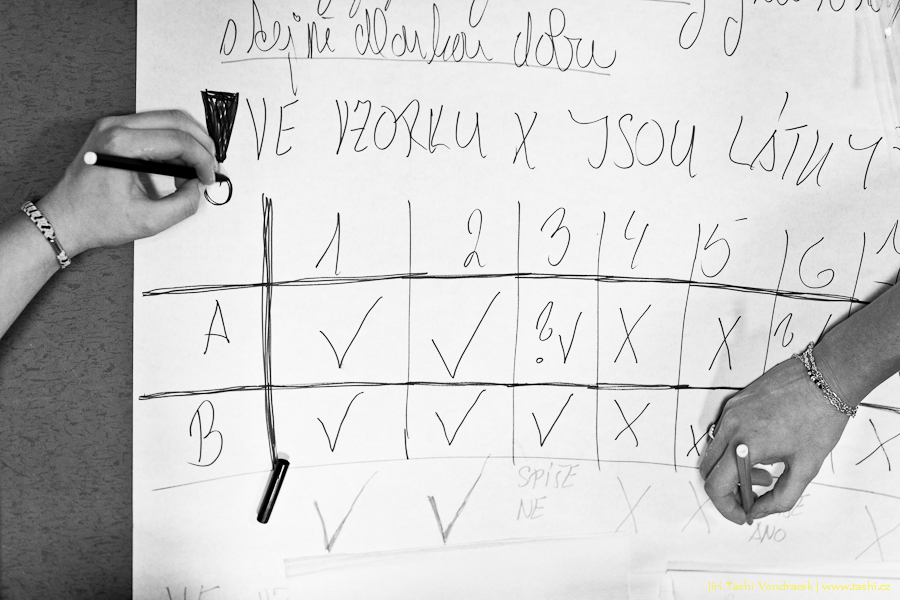 stejně dlouhou dobu
VE VZORKU X JSOU LÁTKY
1 2 3 4 5 6
A ✓ ✓ ?✓ X X ?
B ✓ ✓ ✓ X X X
✓ ✓ SPÍŠE NE X X ANO X
Jiří Tashi Vondráček | www.tashi.cz